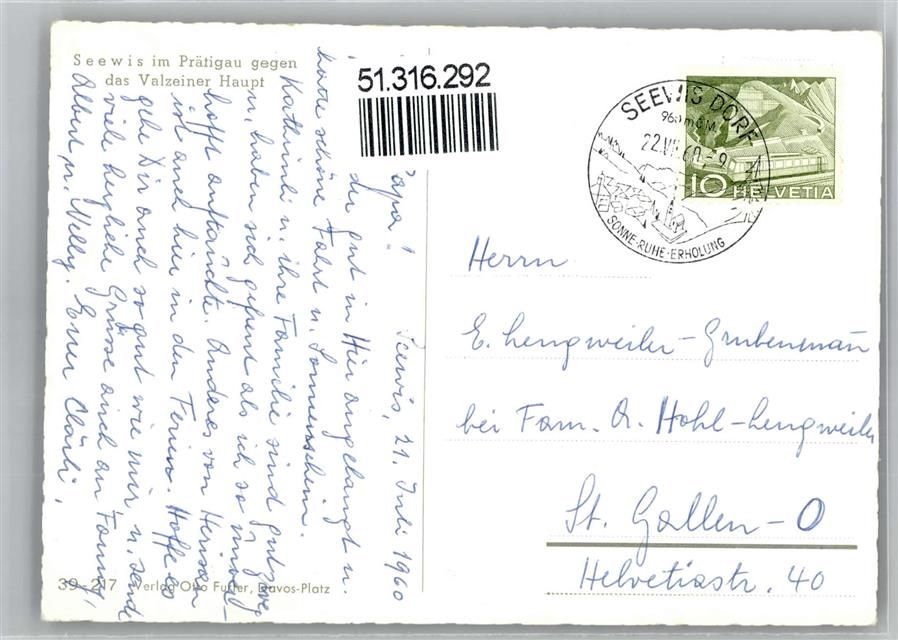 Seewis im Prätigau gegen
das Valzeiner Haupt
51.316.292
SEEWIS DORF
960 m ü. M.
22.VII.60.-9
SONNE·RUHE·ERHOLUNG
10 HELVETIA
Seewis, 21. Juli 1960
Papa!
gut in Hier angelangt u.
hatte schöne Fahrt u. Sonnenschein.
Kathrinli u. ihre Familie sind gut zweg
u. haben sich gefreut als ich so unver-
hofft aufrückte. Andreas von Herisau
ist auch hier in den Ferien. Hoffe es
gehe Dir auch so gut wie mir u. sende
viele herzliche Grüsse auch an Fanny,
Albert, u. Willy. Euer Clärli.
Herrn
E. Lengweiler-Grubenmann
bei Fam. A. Hohl-Lengweiler
St. Gallen-O
Helvetiastr. 40
39-217 Verlag Otto Furter, Davos-Platz